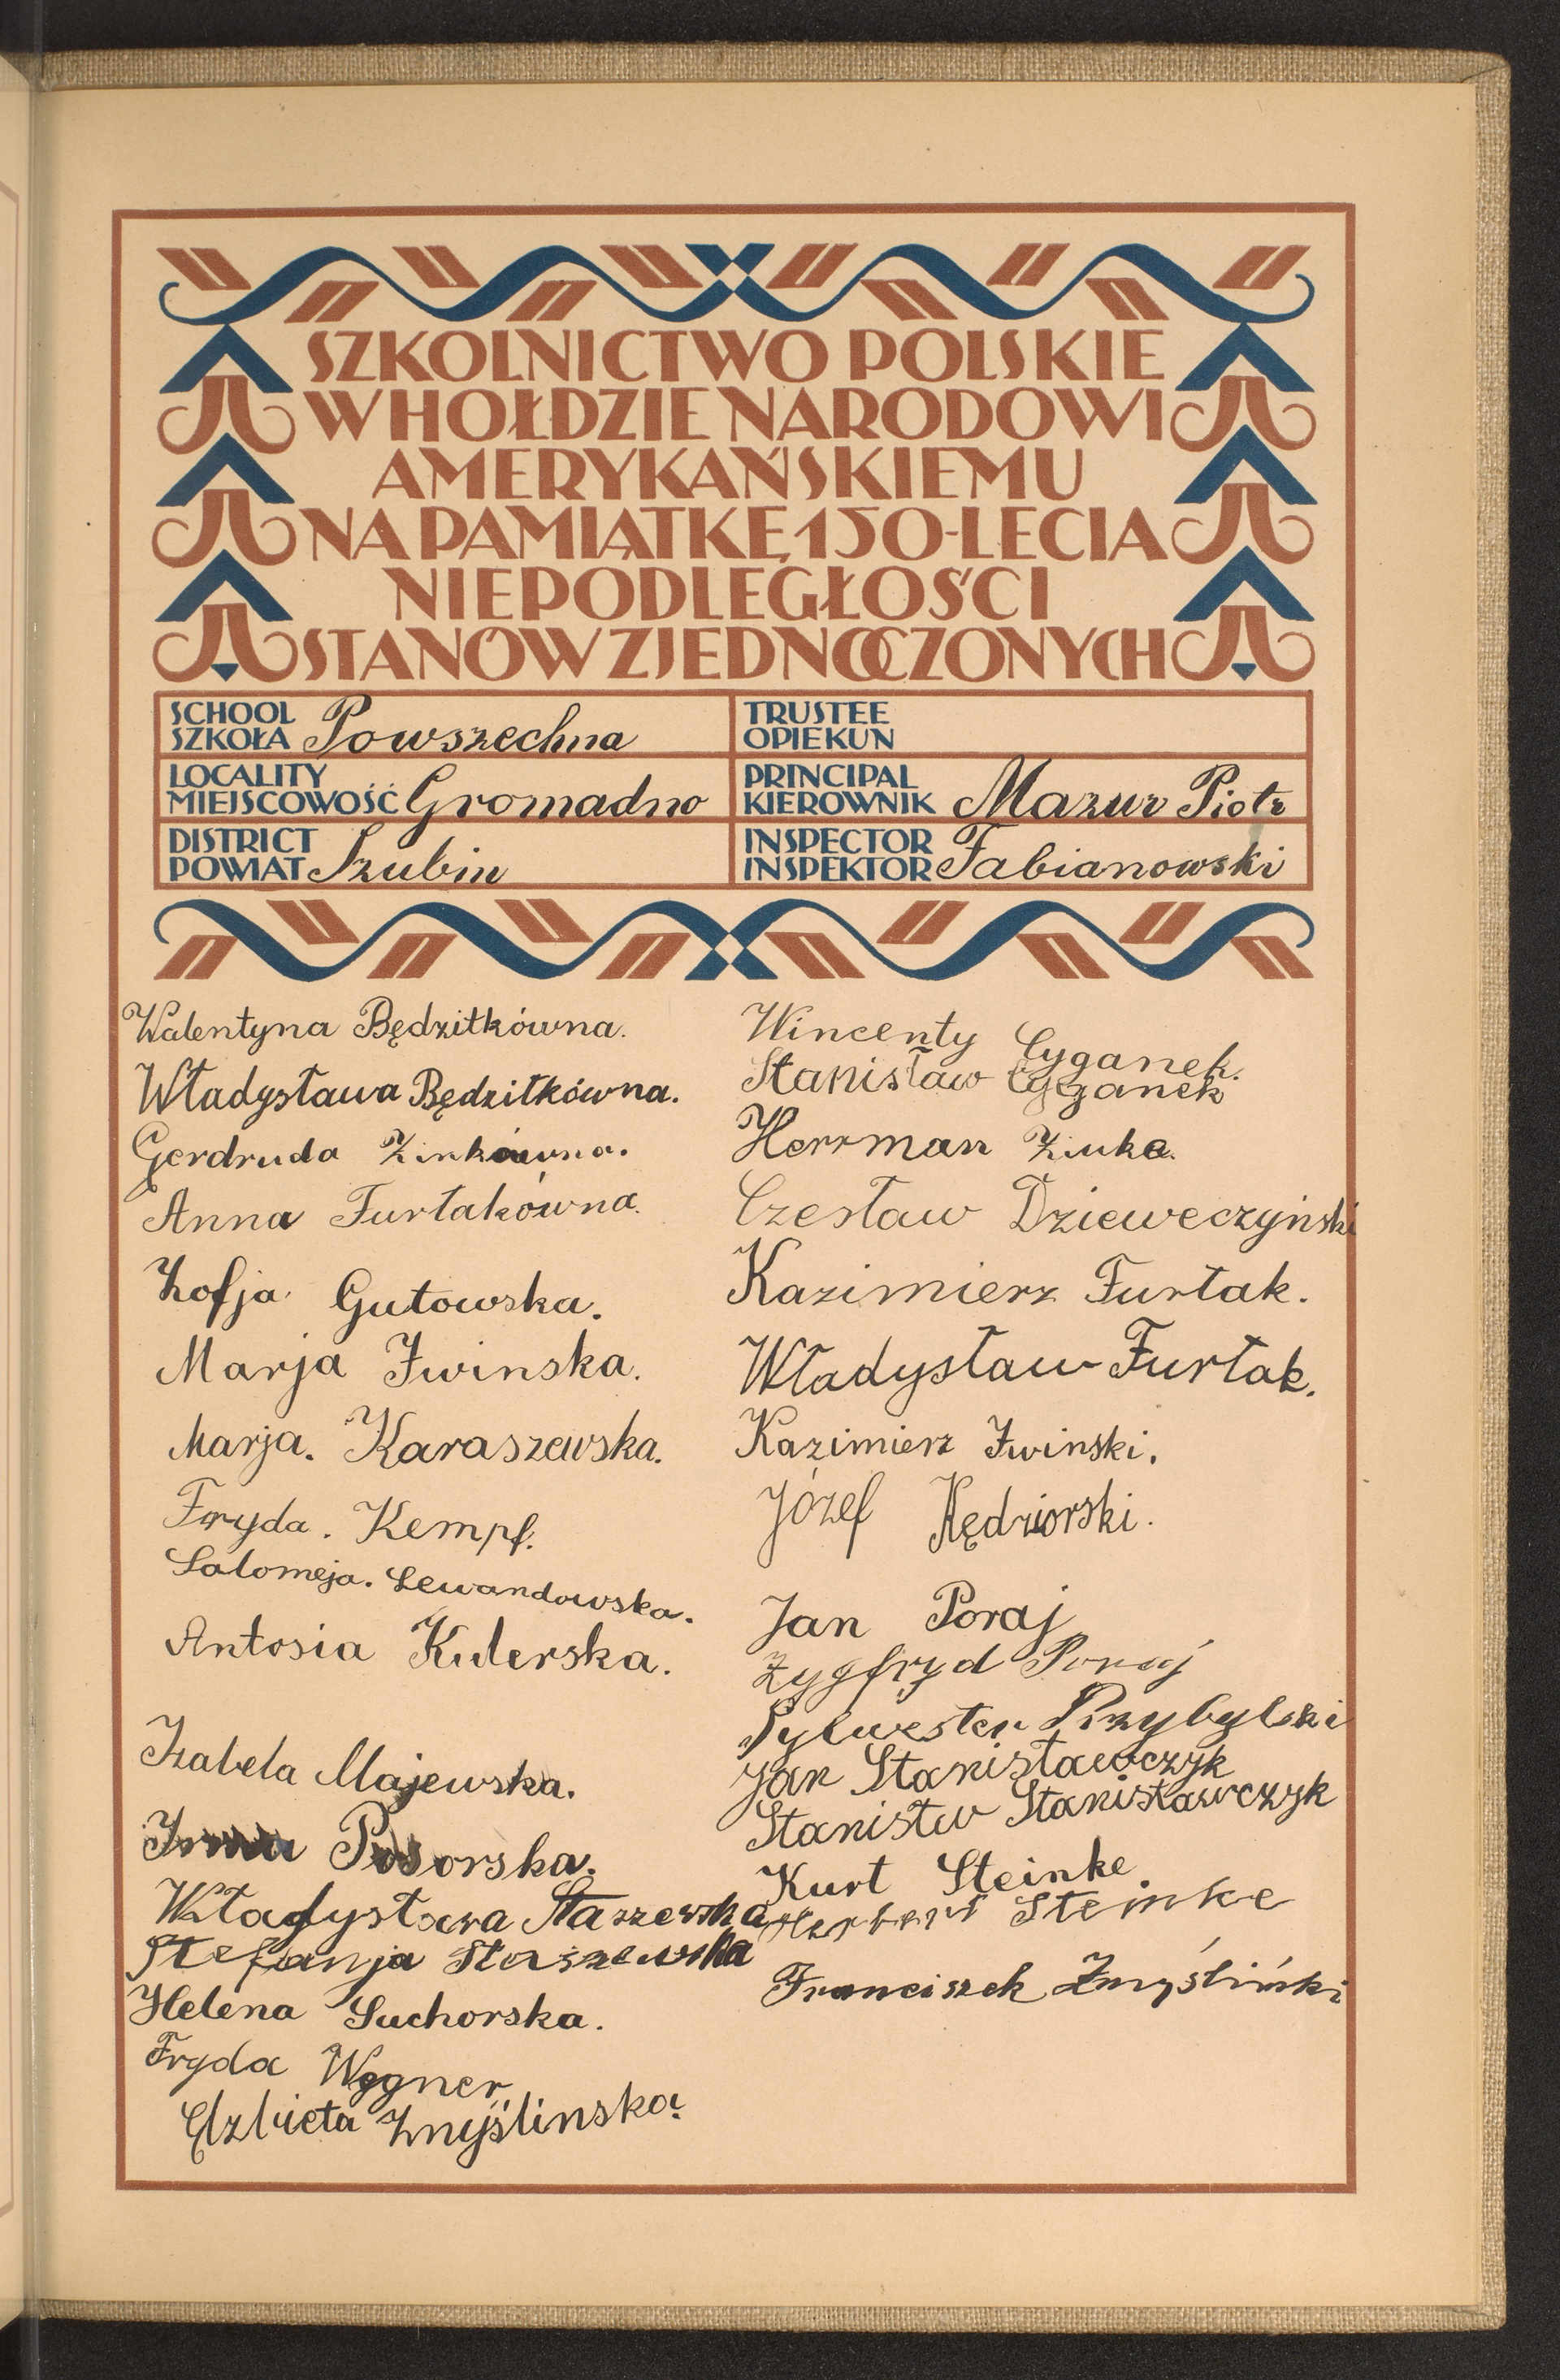 SZKOLNICTWO POLSKIE
W HOŁDZIE NARODOWI
AMERYKAŃSKIEMU
NA PAMIĄTKĘ 150-LECIA
NIEPODLEGŁOŚCI
STANÓW ZJEDNOCZONYCH
SCHOOL
SZKOŁA Powszechna
TRUSTEE
OPIEKUN
LOCALITY
MIEJSCOWOŚĆ Gromadno
PRINCIPAL
KIEROWNIK Mazur Piotr
DISTRICT
POWIAT Szubin
INSPECTOR
INSPEKTOR Fabianowski
Walentyna Będzitkówna.
Władysława Będzitkówna.
Gerdruda Zinkówna.
Anna Furtakówna.
Zofja Gutowska.
Marja Iwinska.
Marja. Karaszewska.
Fryda. Kempf.
Salomeja. Lewandowska.
Antosia Kulerska.
Izabela Majewska.
Irma Posorska.
Władysława Staszewska
Stefanja Staszewska
Helena Suchorska.
Fryda Wegner
Elzbieta Zmyślinska.
Wincenty Cyganek.
Stanisław Cyganek
Herrman Zinke.
Czesław Dzieweczyński
Kazimierz Furtak.
Władysław Furtak.
Kazimierz Iwinski.
Józef Kędziorski.
Jan Poraj
Zygfryd Poraj
Sylwester Przybylski
Jan Stanisławczyk
Stanisłw Stanisławczyk
Kurt Steinke
Herbert Steinke
Franciszek Zmyśliński